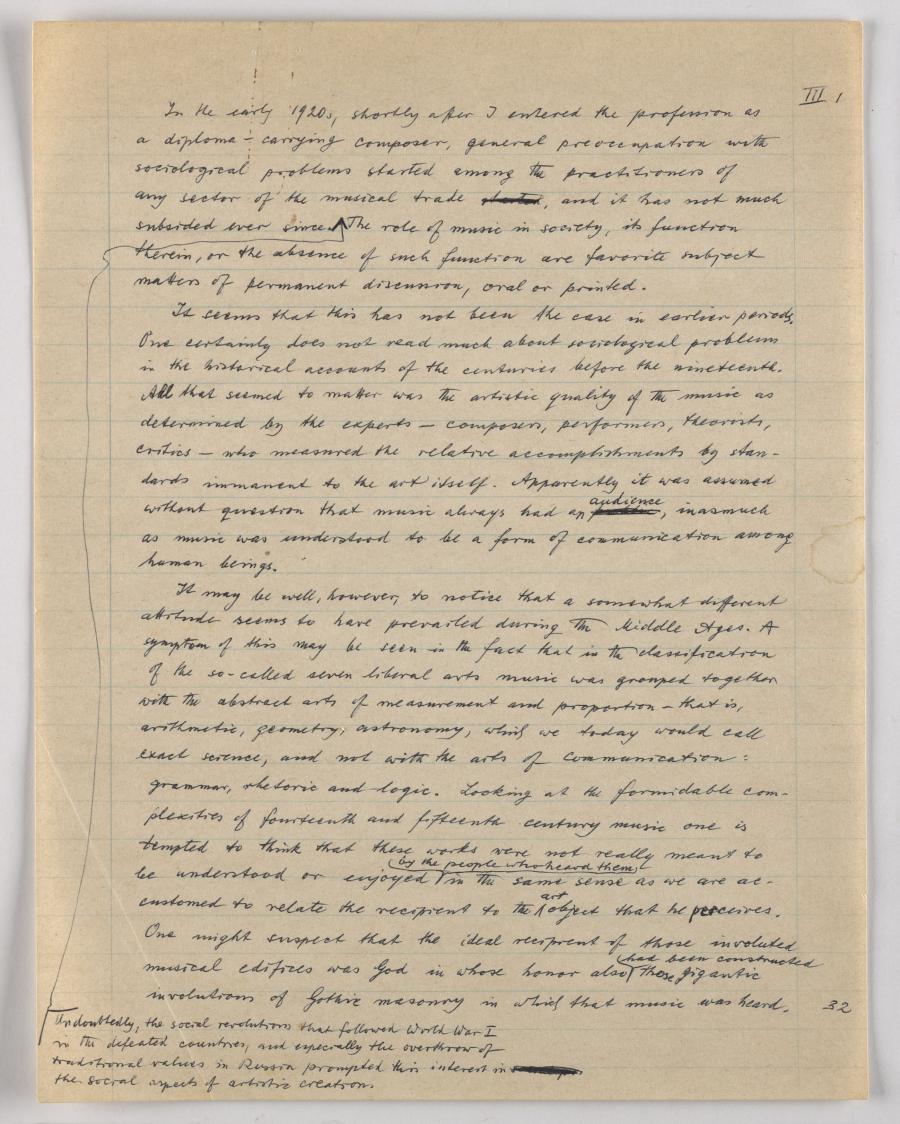 III 1
In the early 1920s, shortly after I entered the profession as
a diploma-carrying composer, general preoccupation with
sociological problems started among the practitioners of
any sector of the musical trade, and it has not much
subsided ever since. The role of music in society, its function
therein, or the absence of such function are favorite subject
matters of permanent discussion, oral or printed.
It seems that this has not been the case in earlier periods.
One certainly does not read much about sociological problems
in the historical accounts of the centuries before the nineteenth.
All that seemed to matter was the artistic quality of the music as
determined by the experts – composers, performers, theorists,
critics – who measured the relative accomplishments by stan-
dards immanent to the art itself. Apparently it was assumed
audience
without question that music always had an, inasmuch
as music was understood to be a form of communication among
human beings.
It may be well, however, to notice that a somewhat different
attitude seems to have prevailed during the Middle Ages. A
symptom of this may be seen in the fact that in the classification
of the so-called seven liberal arts music was grouped together
with the abstract arts of measurement and proportion – that is,
arithmetic, geometry, astronomy, which we today would call
exact science, and not with the arts of communication:
grammar, rhetoric and logic. Looking at the formidable com-
plexities of fourteenth and fifteenth century music one is
tempted to think that these works were not really meant to
(by the people who heard them)
be understood or enjoyed in the same sense as we are ac-
art
customed to relate the recipient to the object that he perceives.
One might suspect that the ideal recipient of those involuted
had been constructed
musical edifices was God in whose honor also those gigantic
involutions of Gothic masonry in which that music was heard.
32
Undoubtedly, the social revolutions that followed World War I
in the defeated countries, and especially the overthrow of
traditional values in Russia prompted this interest in
the social aspects of artistic creation.